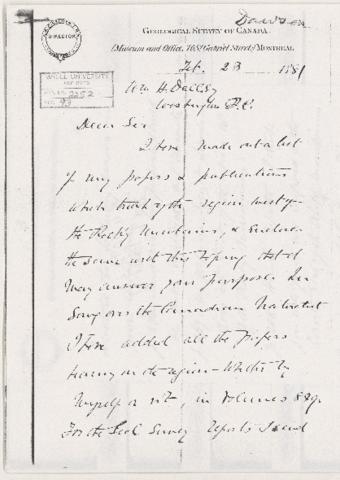 Dawson
GEOLOGICAL SURVEY OF CANADA.
(Museum and Office, 76 St Gabriel Street,) MONTREAL
Feb. 23 1881
McGILL UNIVERSITY
ARCHIVES
2252
Wm H. Dall Esq
Washington D.C.
Dear Sir
I have made out a list
of my papers & publications
which touch of the region west of
the Rocky Mountains, & enclose
the same with this hoping that it
may answer your purpose. In
going over the Canadian Naturalist
I have added all the papers
bearing on the region – whether by
myself or not, in volumes 8 & 9.
For the Geol Survey Reports I send